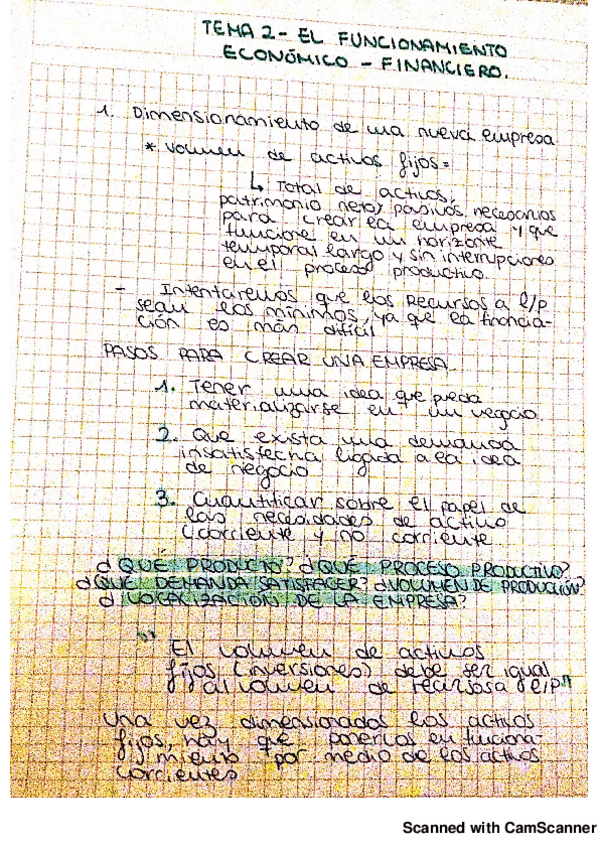 TEMA 2 - EL FUNCIONAMIENTO
ECONÓMICO - FINANCIERO.
1. Dimensionamiento de una nueva empresa
* Volumen de activos fijos =
↳ Total de activos,
patrimonio neto y pasivos necesarios
para crear la empresa y que
funcione en un horizonte
temporal largo y sin interrupciones
en el proceso productivo.
- Intentaremos que los Recursos a l/p
sean los mínimos, ya que la financia-
ción es más difícil
PASOS PARA CREAR UNA EMPRESA
1. Tener una idea que pueda
materializarse en un negocio.
2. Que exista una demanda
insatisfecha ligada a la idea
de negocio
3. Cuantificar sobre el papel de
las necesidades de activo
(corriente y no corriente
¿QUÉ PRODUCTO? ¿QUÉ PROCESO PRODUCTIVO?
¿QUÉ DEMANDA SATISFACER? ¿VOLUMEN DE PRODUCCIÓN?
¿LOCALIZACIÓN DE LA EMPRESA?
"El volumen de activos
fijos (inversiones) debe ser igual
al volumen de recursos a l/p"
Una vez dimensionados los activos
fijos, hay que ponerlos en funciona-
miento por medio de los activos
corrientes
Scanned with CamScanner